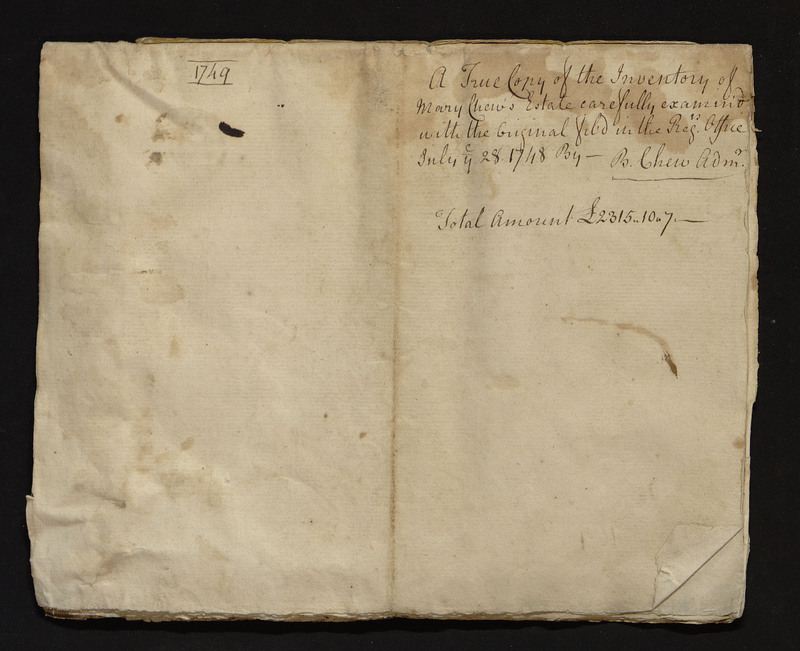 1749
A True Copy of the Inventory of
Mary Chew's Estate carefully examin'd
with the Original fil'd in the Regrs. Office
July ye 28 1748 By — B. Chew Admr.
Total Amount £2315.. 10.. 7. —